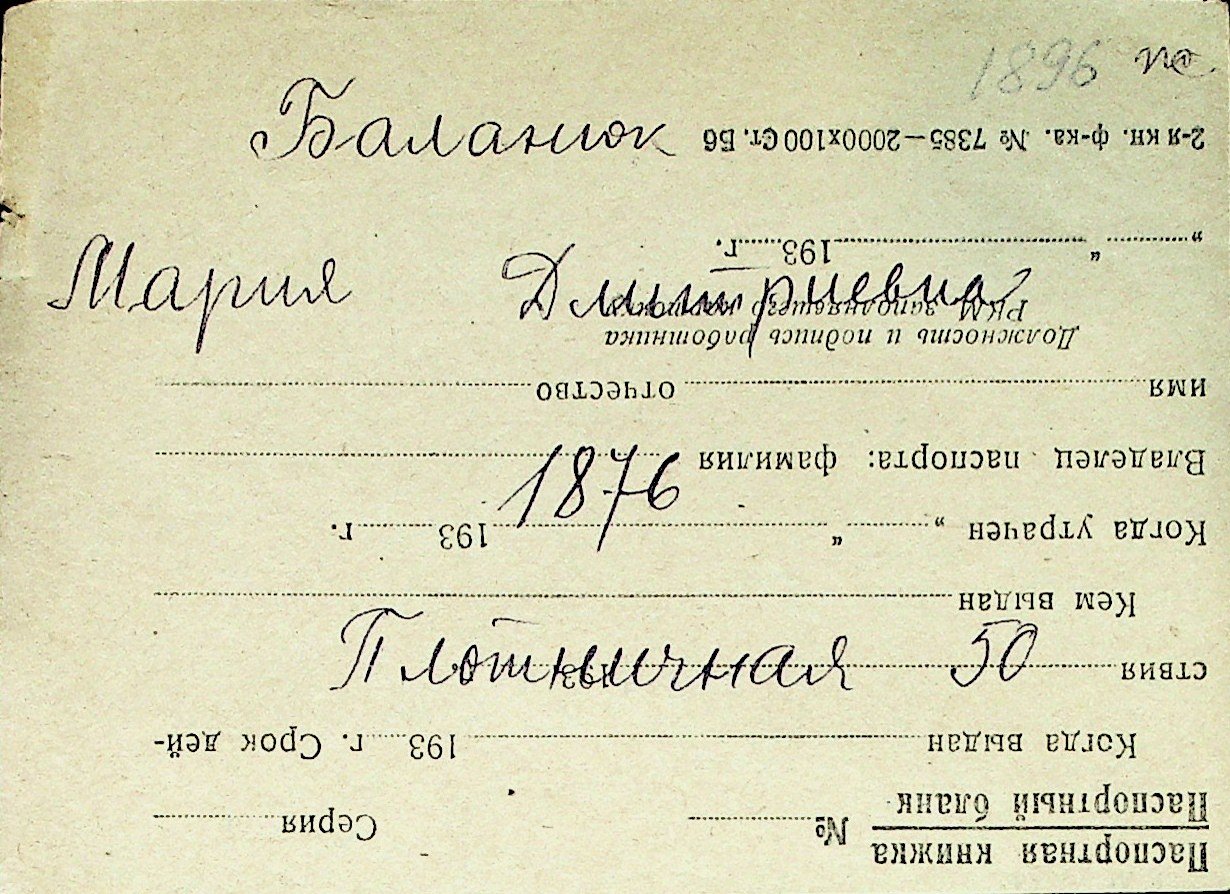 1896
Баланюк
Мария Дмитриевна
1876
Плотничная 50
Паспортная книжка
Паспортный бланк
№ Серия
Когда выдан 193 г. Срок дей-
ствия 193 г.
Кем выдан
Когда утрачен „ “ 193 г.
Владелец паспорта: фамилия
имя отчество
Должность и подпись работника
РКМ, заполняющего карточку
„ “ 193 г.
2-я кн. ф-ка. № 7385—2000х100 Ст. Бб